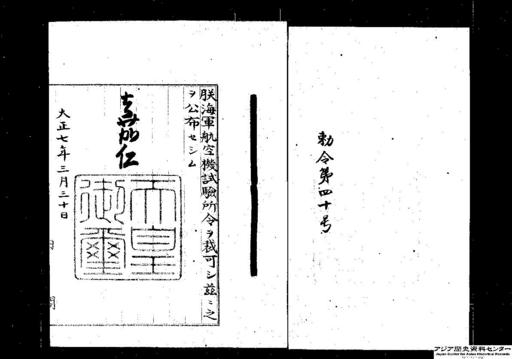 勅令第四十号
朕海軍航空機試験所令ヲ裁可シ茲ニ之
ヲ公布セシム
嘉仁
天皇
御璽
大正七年三月三十日
内
閣
アジア歴史資料センター
Japan Center for Asian Historical Records